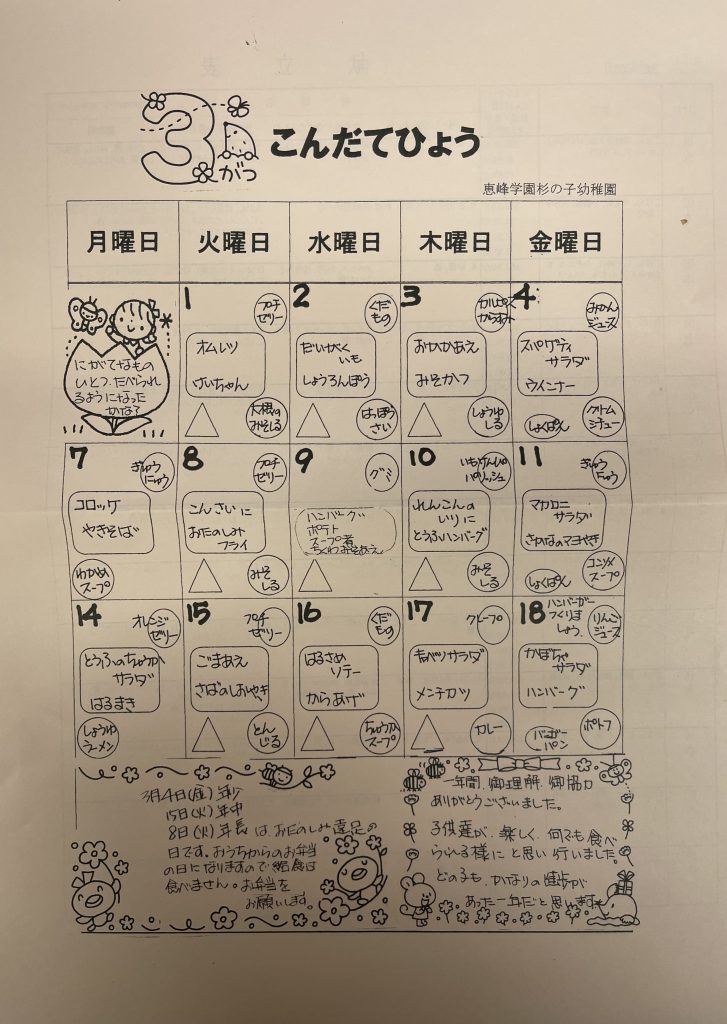 3がつ
こんだてひょう
恵峰学園杉の子幼稚園
月曜日 火曜日 水曜日 木曜日 金曜日
にがてなもの
ひとつ、たべられ
るようになった
かな?
1
プチ
ゼリー
オムレツ
けいちゃん
大根の
みそしる
2
くだ
もの
だいがく
いも
しょうろんぽう
はっぽう
さい
3
おかかあえ
みそかつ
しょうゆ
しる
4
みかん
ジュース
スパゲティ
サラダ
ウインナー
しょくぱん
クリーム
シチュー
7
ぎゅう
にゅう
コロッケ
やきそば
わかめ
スープ
8
プチ
ゼリー
こんさいに
おたのしみ
フライ
みそ
しる
9
グミ
ハンバーグ
ポテト
スープ煮
ちくわみそあえ
10
れんこんの
いりに
とうふハンバーグ
みそ
しる
11
ぎゅう
にゅう
マカロニ
サラダ
さかなのマヨやき
しょくぱん
コンソメ
スープ
14
オレンジ
ゼリー
とうふのちゅうか
サラダ
はるまき
しょうゆ
ラーメン
15
プチ
ゼリー
ごまあえ
さばのしおやき
とん
じる
16
くだ
もの
はるさめ
ソテー
からあげ
ちゅうか
スープ
17
クレープ
キャベツサラダ
メンチカツ
カレー
18
ハンバーガー
つくりま
しょう
りんご
ジュース
かぼちゃ
サラダ
ハンバーグ
バーガー
パン
ポトフ
3月4日(金)年少
15日(火)年中
8日(火)年長は、おたのしみ遠足の
日です。おうちからのお弁当
の日になりますので給食は
食べません。お弁当を
お願いします。
一年間、御理解、御協力
ありがとうございました。
子供達が、楽しく、何でも食べ
られる様にと思い行いました
どの子も、かなりの進歩が
あった一年だと思います。